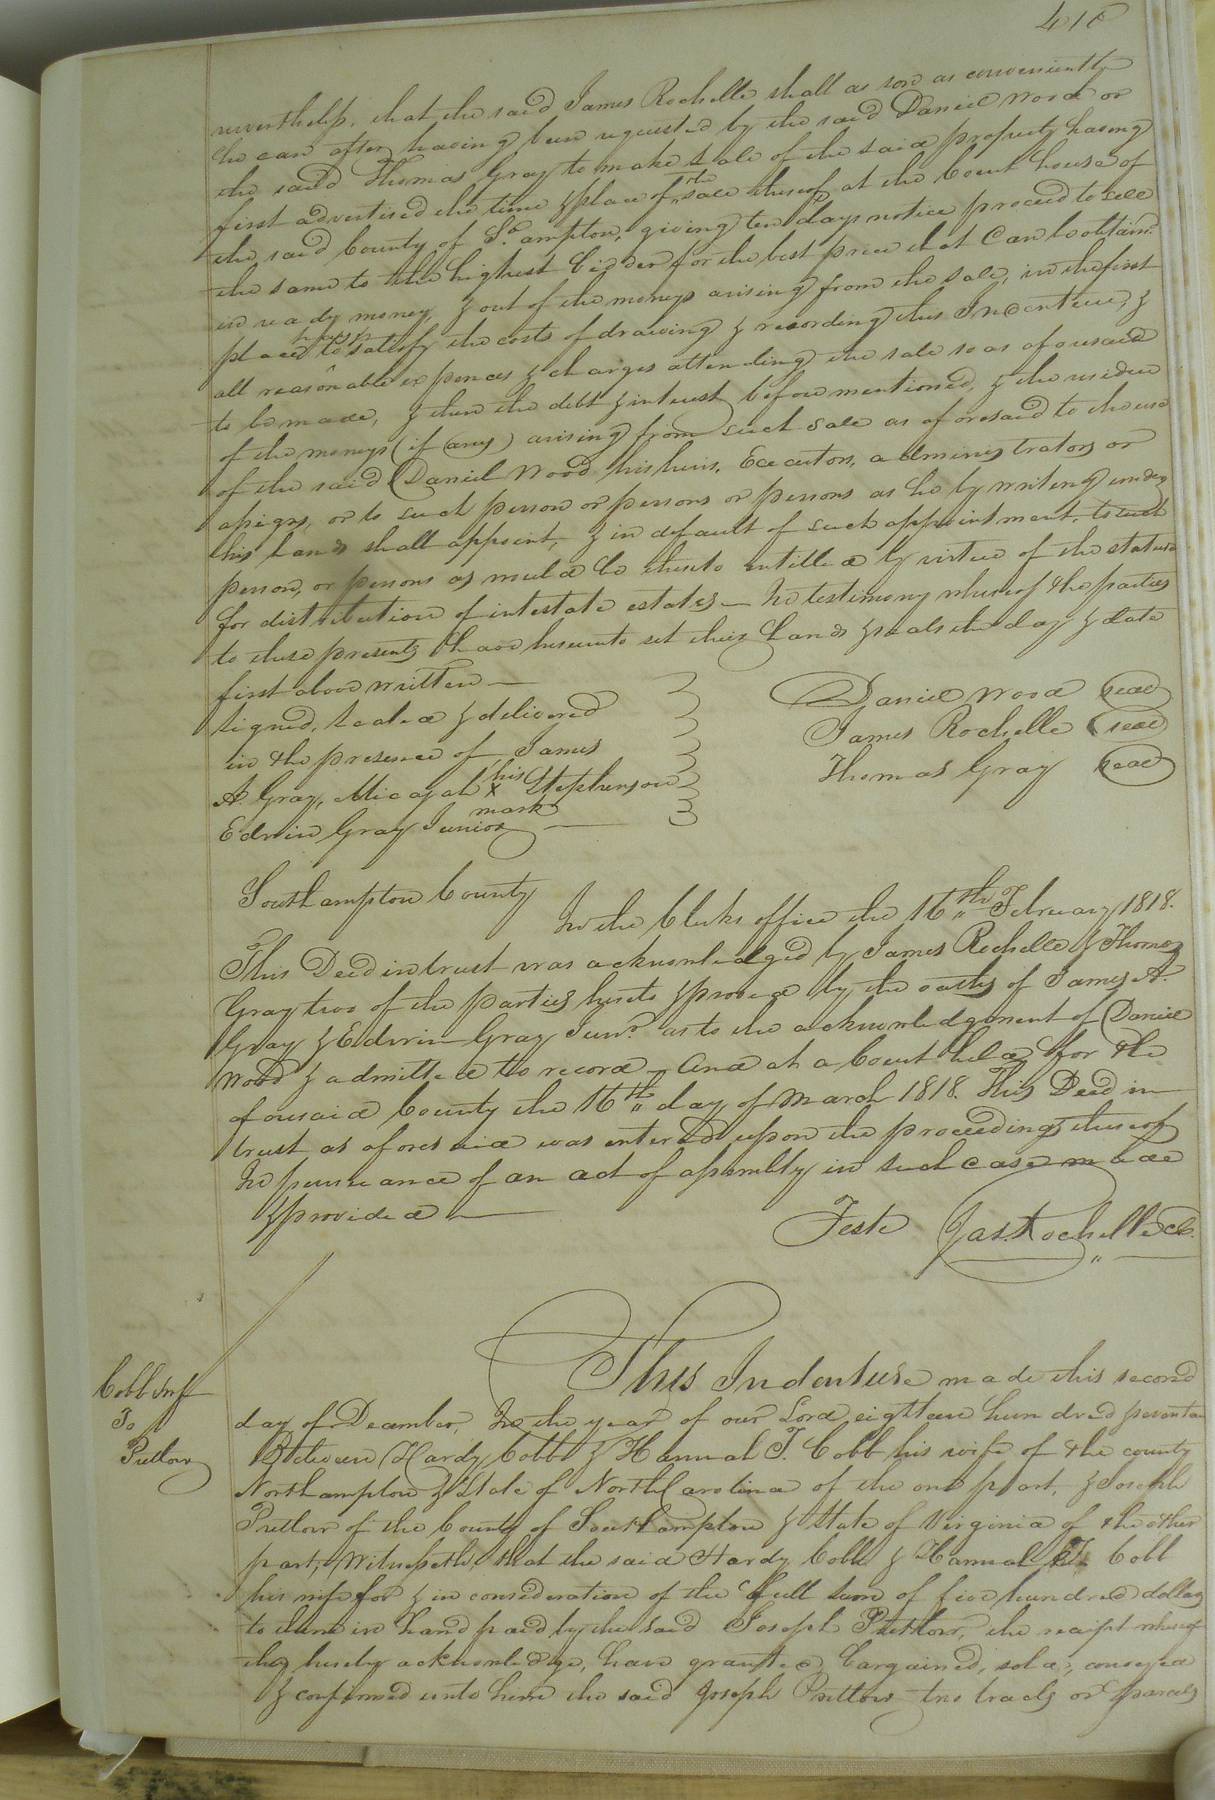 nevertheless, that the said James Rochelle shall as soon as conveniently
he can after having been requested by the said Daniel Wood or
the said Thomas Gray to make sale of the said property having
first advertised the time & place of the sale thereof at the Court house of
the said County of So.ampton, giving ten days notice proceed to sell
the same to the highest bidder for the best price that can be obtain.d
in ready money, & out of the moneys arising from the sale, in the first
place to satisfy the costs of drawing & recording this Indenture, &
all reasonable expences & charges attending the sale so as aforesaid
to be made, & then the debt & interest before mentioned, & the residue
of the moneys (if any) arising from such sale as aforesaid to the use
of the said Daniel Wood his heirs, Executors, administrators or
assigns, or to such person or persons or persons as he by writing under
his hands shall appoint, & in default of such appointment, to such
person, or persons as would be thereto entitled by virtue of the statute
for distribution of intestate estates — In testimony whereof the parties
to these presents have hereunto set their hands & seals the day & date
first above written —
Signed, sealed & delivered
in the presence of James
A. Gray, Micajah his X mark Stephenson
Edwin Gray Junior —
Daniel Wood seal
James Rochelle seal
Thomas Gray seal
Southampton County
In the Clerks office the 16th February 1818.
This Deed in trust was acknowledged by James Rochelle & Thomas
Gray two of the parties hereto & proved by the oaths of James A.
Gray & Edwin Gray Junr. as to the acknowledgement of Daniel
Wood & admitted to record — And at a Court held for the
aforesaid County the 16th day of March 1818. This Deed in
trust as aforesaid was entered upon the proceedings thereof
In pursuance of an act of assembly in such case made
& provided —
Teste Jas. Rochelle Cl.
Cobb &
To
Pretlow
This Indenture made this second
day of December, In the year of our Lord eighteen hundred seventeen
Between Hardy Cobb & Hannah T. Cobb his wife of the county
Northampton & State of North Carolina of the one part, & Joseph
Pretlow of the County of Southampton & State of Virginia of the other
part, Witnesseth, that the said Hardy Cobb & Hannah T. Cobb
his wife for & in consideration of the full sum of five hundred dollars
to them in hand paid by the said Joseph Pretlow, the receipt whereof
they hereby acknowledge, have granted, bargained, sold, conveyed
& confirmed unto him the said Joseph Pretlow two tracts or parcels